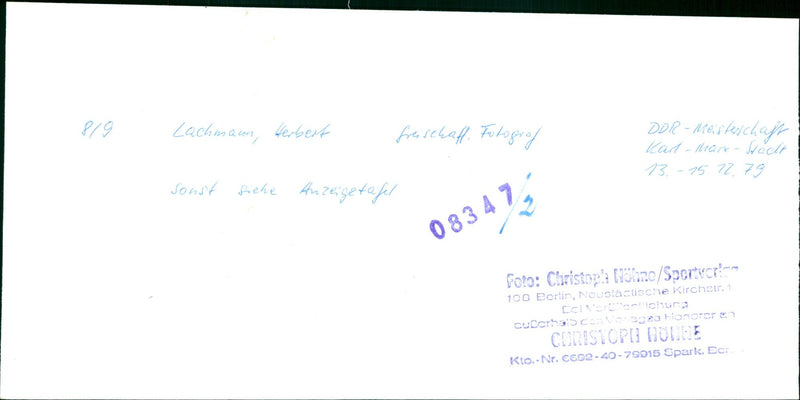 8/9 Lachmann, Herbert freischaff. Fotograf
DDR-Meisterschaft
Karl-Marx-Stadt
13.-15.12.79
sonst siehe Anzeigetafel
08347/2
Foto: Christoph Höhne/Sportverlag
108 Berlin, Neustädtische Kirchstr. 1
Bei Veröffentlichung
außerhalb des Verlages Honorar an
CHRISTOPH HÖHNE
Kto.-Nr. 6692-40-79915 Spark.